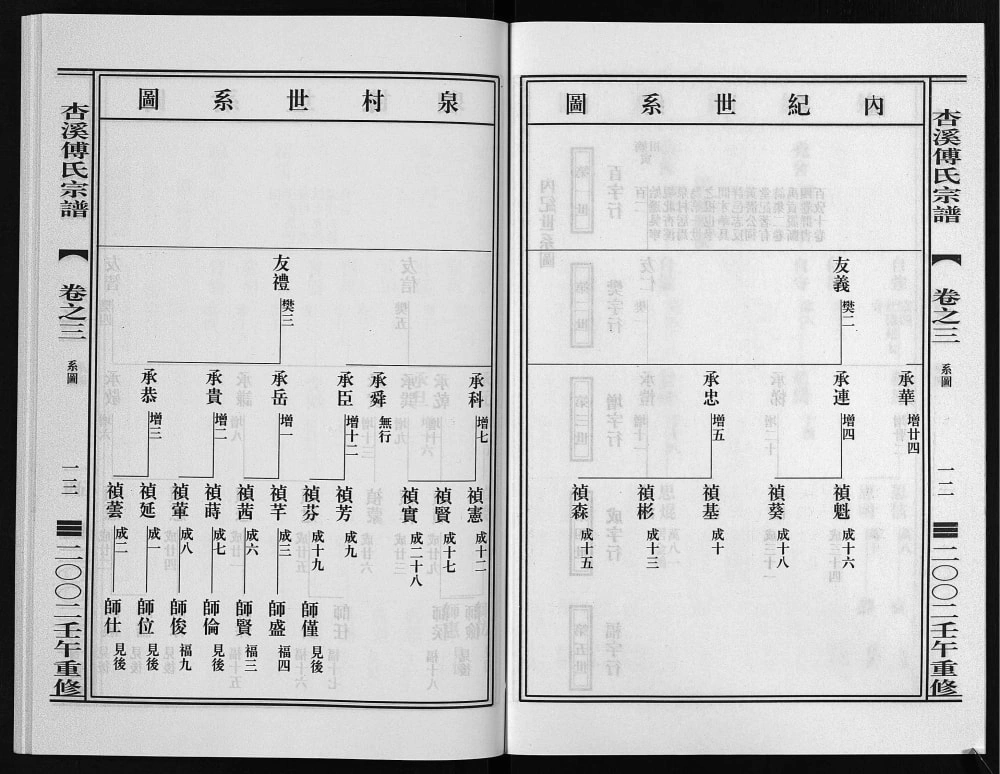 杏溪傅氏宗譜
卷之三
系圖
一二
二〇〇二壬午重修
內紀世系圖
友義
樊二
承華
增廿四
承連
增四
承忠
增五
禎魁
成十六
禎葵
成十八
禎基
成十
禎彬
成十三
禎森
成十五
泉村世系圖
友禮
樊三
承科
增七
承舜
無行
承臣
增十二
承岳
增一
承貴
增二
承恭
增三
禎憲
成十二
禎賢
成十七
禎實
成二十八
禎芳
成九
禎芬
成十九
禎芊
成三
禎茜
成六
禎蒔
成七
禎葷
成八
禎延
成一
禎蕓
成二
師僅
見後
師盛
福四
師賢
福三
師倫
見後
師俊
福九
師位
見後
師仕
見後
杏溪傅氏宗譜
卷之三
系圖
一三
二〇〇二壬午重修